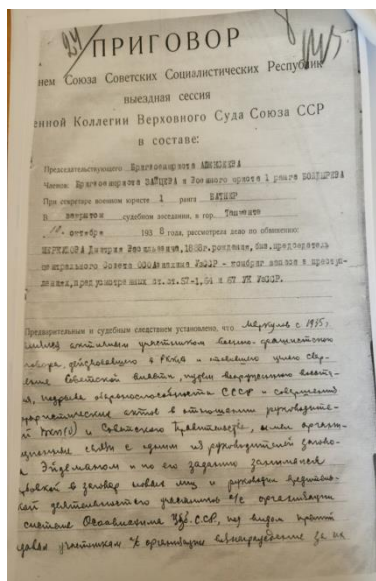 237
ПРИГОВОР
нем Союза Советских Социалистических Республик
выездная сессия
енной Коллегии Верховного Суда Союза ССР
в составе:
Председательствующего Бригвоенюриста
Членов Бригвоенюриста ЗАЙЦЕВА и Военного юриста 1 ранга БОЛДЫРЕВА
При секретаре военном юристе 1 ранга БАТНЕР
В закрытом судебном заседании, в гор. Ташкенте
октября 193 8 года, рассмотрела дело по обвинению:
МЕРКУЛОВА Дмитрия 1888г.рождения, быв. председатель
Центрального Совета ОСОАвиахима УзССР - комбриг запаса в преступ-
лениях, предусмотренных ст.ст.57-1, 64 и 67 УК УзССР.
Предварительным и судебным следствием установлено, что Меркулов с 1935,
являлся активным участником военно-фашистского
говора, действовавшего в РККА и ставившего целью свер-
жение Советской власти, путем вооруженного восст-
подрыва обороноспособности СССР и совершения
террористических актов в отношении руководите-
й ВКП(б) и Советского Правительства, имел органи-
зационные связи с одним из руководителей загово-
Эйдеманом и по его заданию занимался
вербовкой в заговор новых лиц и руководил вредитель-
ской деятельностью участников а/с организации
системе Осоавиахима Узб.ССР, под видом премий
давал участникам организации вознаграждение за их